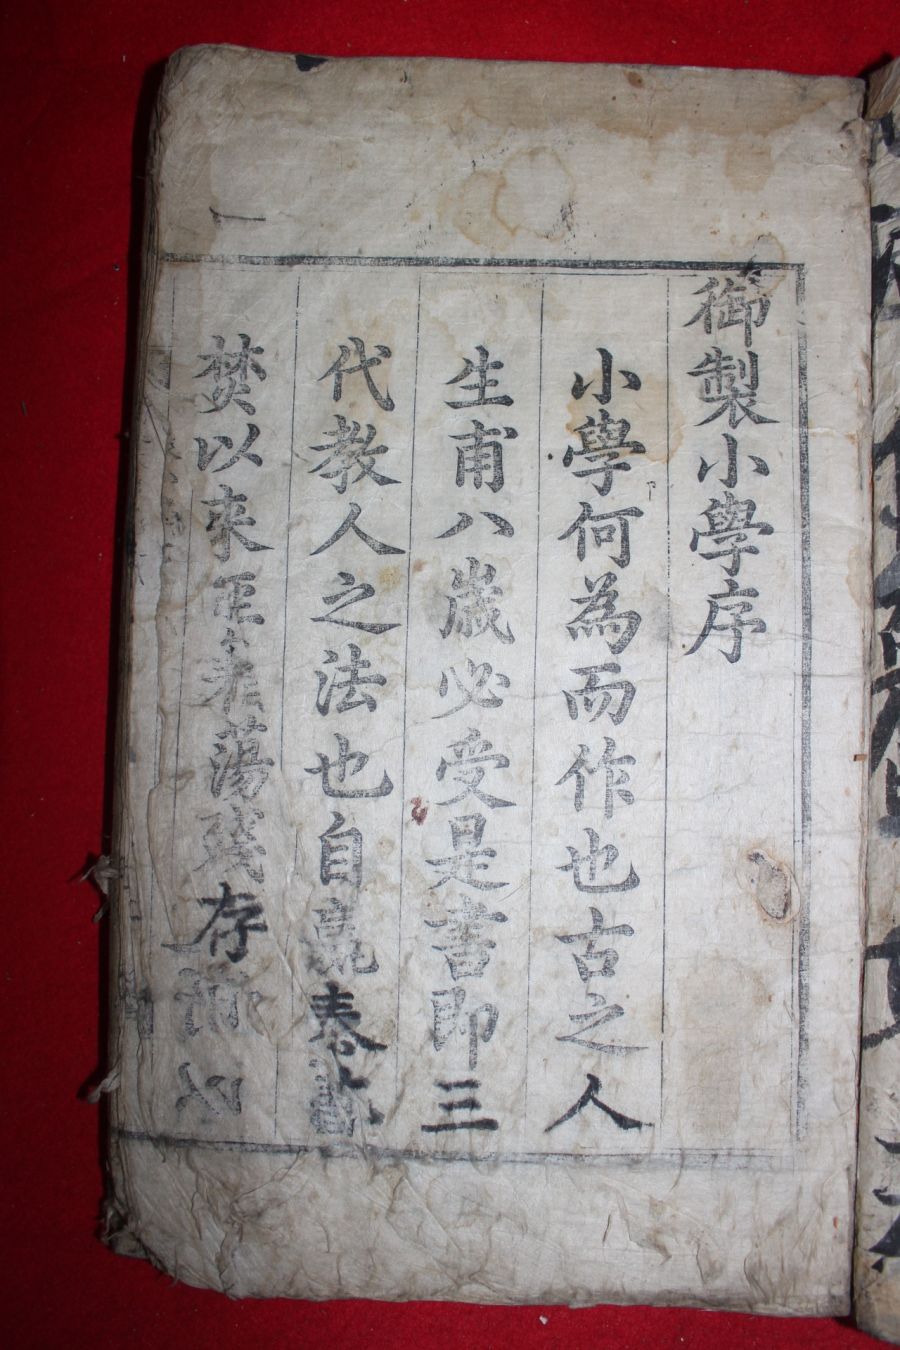 御製小學序
小學何為而作也古之人
生甫八歲必受是書即三
代教人之法也自嬴秦
焚以來蕩殘存以